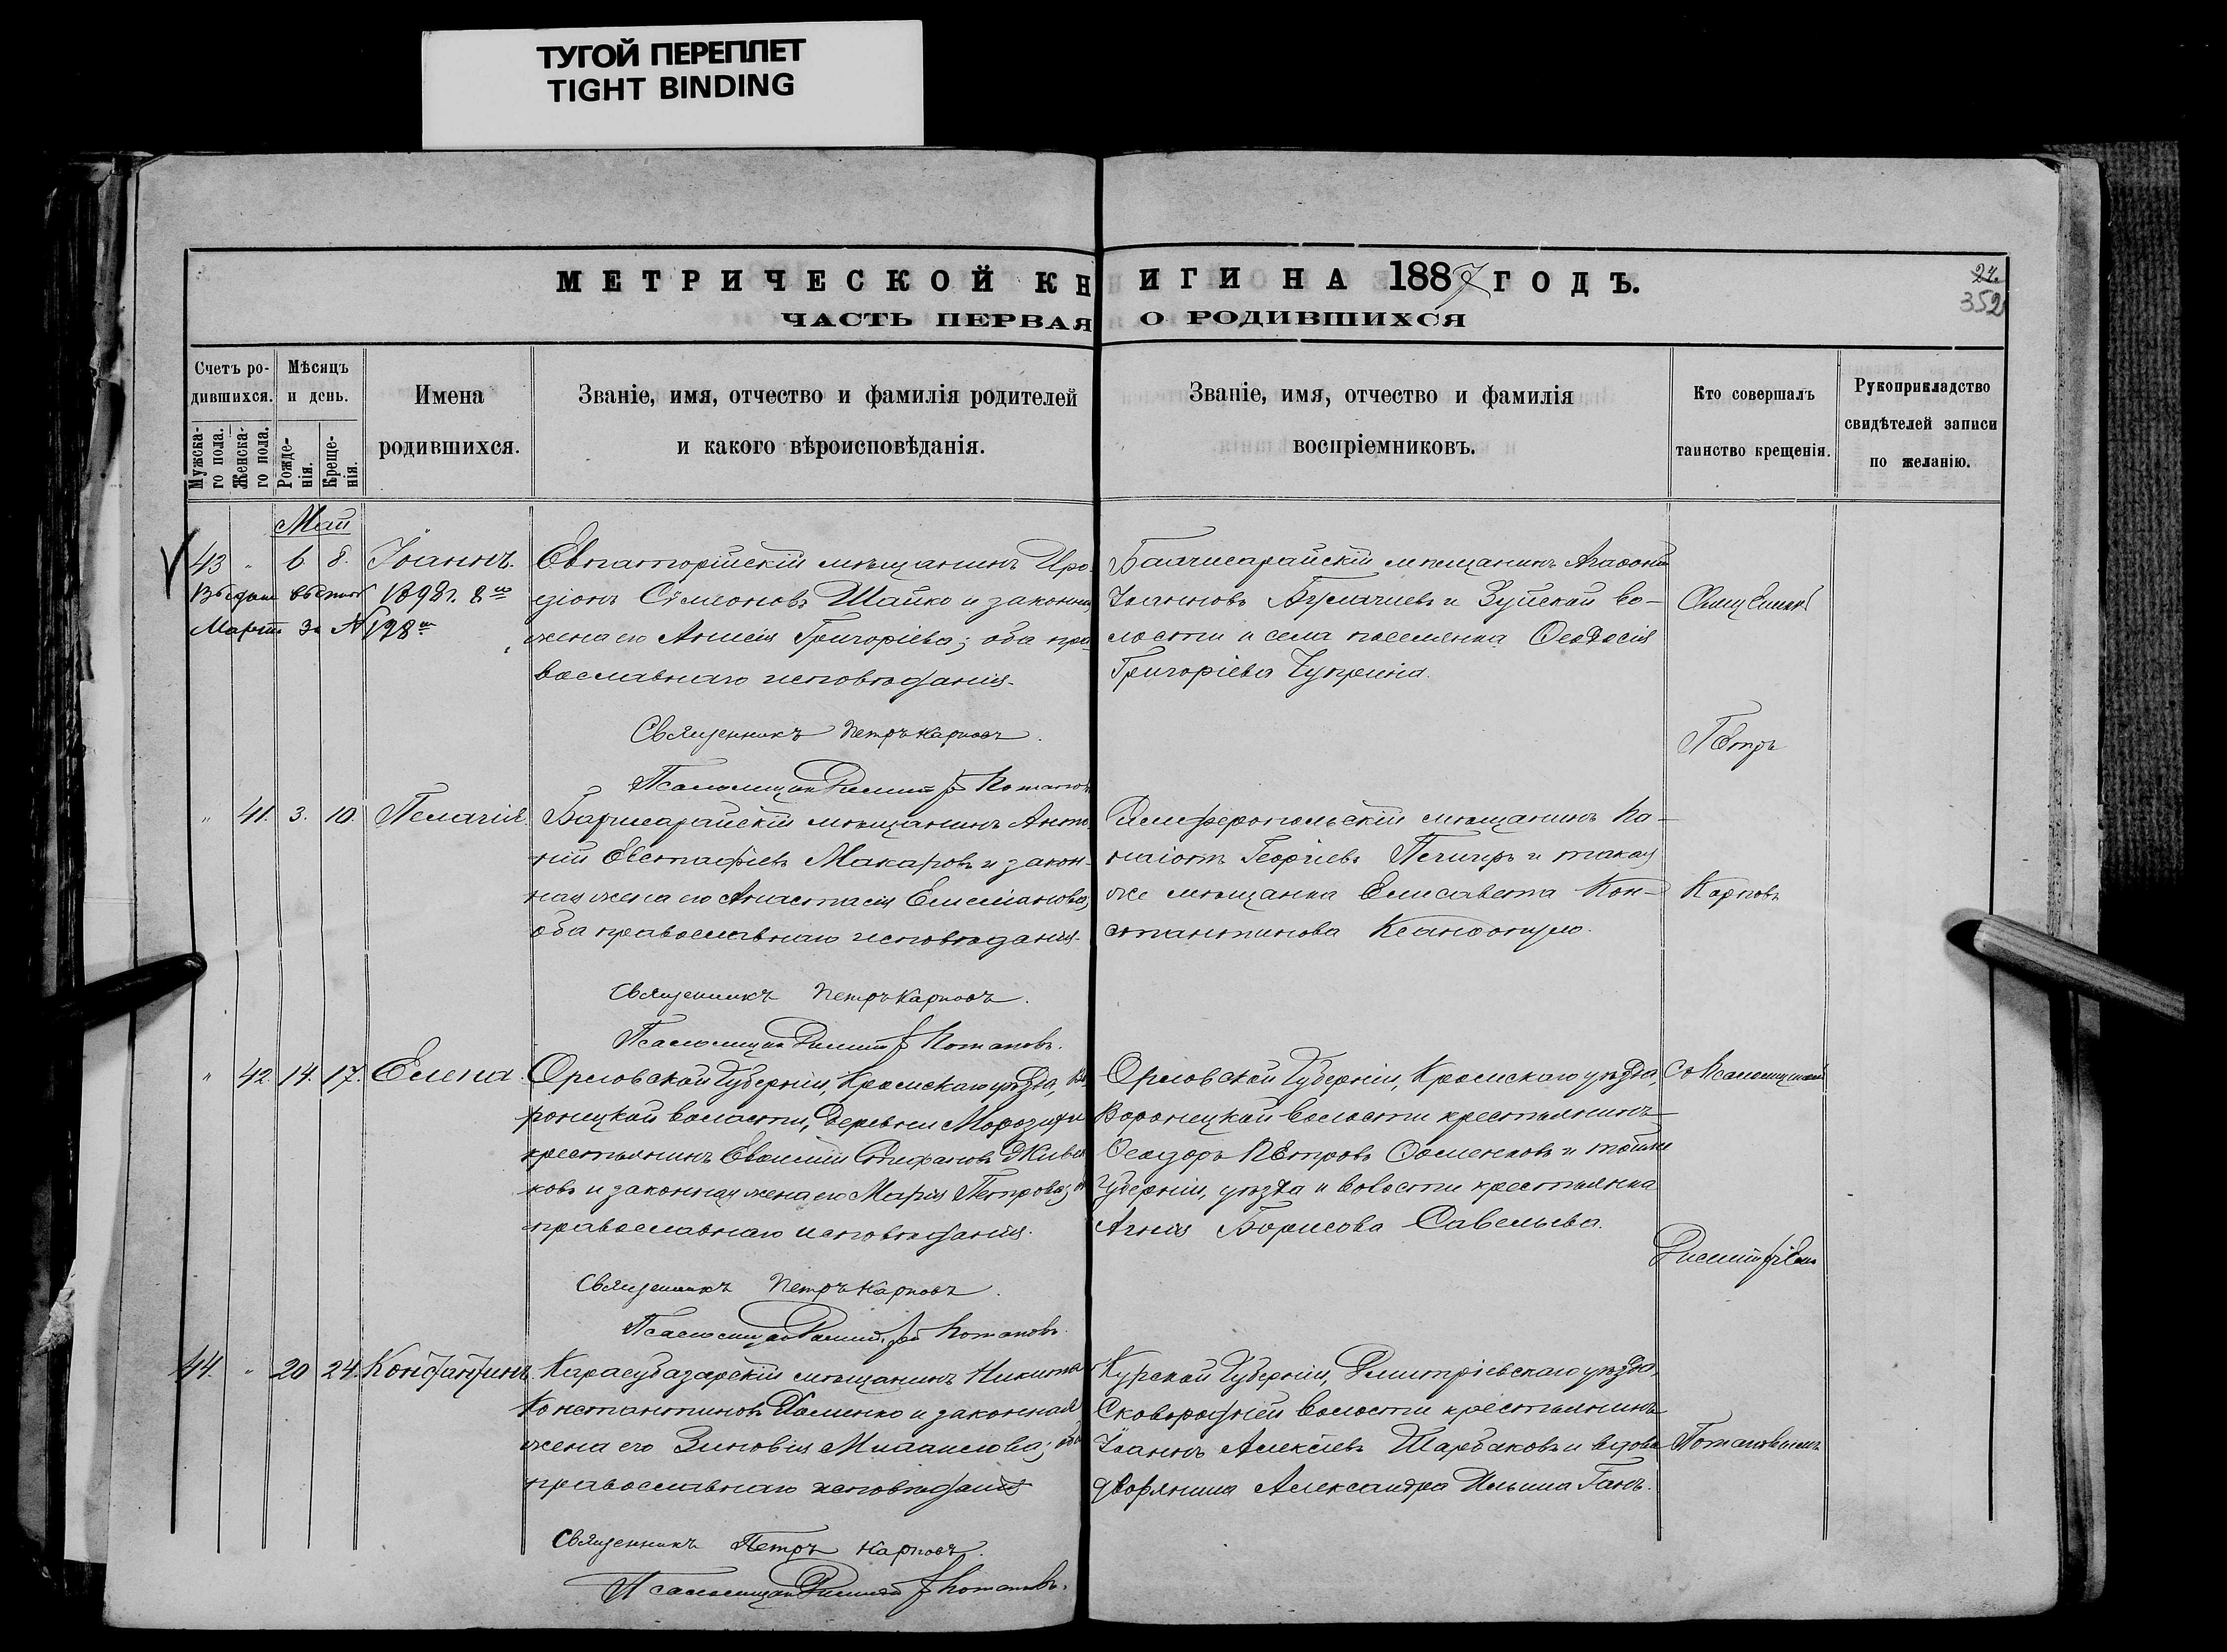 ТУГОЙ ПЕРЕПЛЕТ
TIGHT BINDING
МЕТРИЧЕСКОЙ КНИГИ НА 1887 ГОДЪ.
ЧАСТЬ ПЕРВАЯ О РОДИВШИХСЯ
24.
352
Счетъ ро-
дившихся.
Мужска-
го пола.
Женска-
го пола.
Мѣсяцъ
и день.
Рожде-
нія.
Креще-
нія.
Имена
родившихся.
Званіе, имя, отчество и фамилія родителей
и какого вѣроисповѣданія.
Званіе, имя, отчество и фамилія
воспріемниковъ.
Кто совершалъ
таинство крещенія.
Рукоприкладство
свидѣтелей записи
по желанію.
Май
43 " 6 8. Іоаннъ.
1898 г. 8го
Марта за № 128м
Евпаторійскій мѣщанинъ Иро-
діонъ Сѵмеоновъ Шайко и законная
жена его Анисія Григоріева; оба пра-
вославнаго исповѣданія.
Іоанновъ и Зуйской во-
лости и села поселянка Ѳеодосія
Григоріева Чуприна.
Священникъ Петръ Карповъ.
Псаломщикъ Димитрій Потаповъ
" 41. 3. 10. Пелагія.
мѣщанинъ Анто-
ній Евстафіевъ Макаровъ и закон-
ная жена его Анастасія Емеліанова;
оба православнаго исповѣданія.
Симферопольскій мѣщанинъ Па-
наіотъ Георгіевъ и такая
же мѣщанка Елисавета Кон-
стантинова
Священникъ Петръ Карповъ.
Псаломщикъ Димитрій Потаповъ.
" 42. 14. 17. Елена.
Орловской Губерніи, Кромскаго уѣзда, Во-
ронецкой волости, деревни
крестьянинъ Евѳимій Стефановъ
ковъ и законная жена его Марія Петрова;
православнаго исповѣданія.
Орловской Губерніи, Кромскаго уѣзда,
Воронецкой волости крестьянинъ
Ѳеодоръ Петровъ и тойже
Губерніи, уѣзда и волости крестьянка
Агнія Борисова Савельева.
Священникъ Петръ Карповъ.
Псаломщикъ Димитрій Потаповъ.
44. " 20 24. Константинъ.
Карасубазарскій мѣщанинъ Никита
Константиновъ Хоменко и законная
жена его Зиновія Михаилова; оба
православнаго исповѣданія
Курской Губерніи, Димитріевскаго уѣзда,
волости крестьянинъ
Іоаннъ Алексіевъ Шарбаковъ и вдова
дворянина Александра Ильина Ганъ.
Священникъ Петръ Карповъ.
Псаломщикъ Димитрій Потаповъ.
Священникъ
Петръ
Карповъ
Съ Псаломщикомъ
Димитріемъ
Потаповымъ